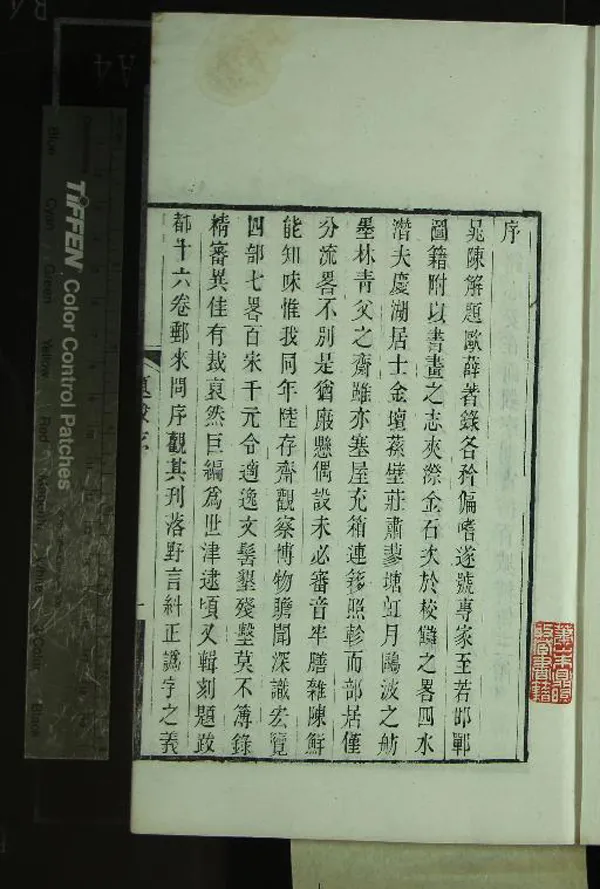 序
晁陳解題歐薛著錄各矜偏嗜遂號專家至若邯鄲
圖籍附以書畫之志夾漈金石次於校讎之畧四水
潛夫慶湖居士金壇蕉壁莊肅蓼塘虹月鷗波之舫
墨林青父之齋雖亦塞屋充箱連簃照軫而部居僅
分流畧不別是猶廠懸偶設未必審音牢膳雜陳鮮
能知味惟我同年陸存齋觀察博物贍聞深識宏覽
四部七畧百宋千元令適逸文髻墾殘鑿莫不簿錄
精審異佳有裁裒然巨編爲世津逮頃又輯刻題跋
都十六卷郵來問序觀其刊落野言糾正譌字之義
一
TIFFEN Color Control Patches
Blue
Cyan
Green
Yellow
Red
Black
A4